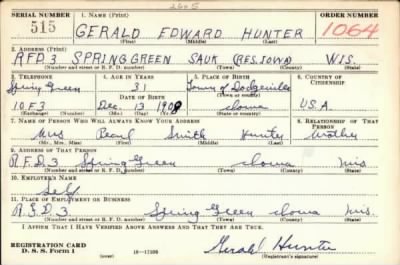 2605
SERIAL NUMBER 1. NAME (Print) ORDER NUMBER
515 GERALD EDWARD HUNTER 1064
(First) (Middle) (Last)
2. ADDRESS (Print)
RFD 3 SPRING GREEN SAUK (RES. IOWA) WIS.
(Number and street or R. F. D. number) (Town) (County) (State)
3. TELEPHONE 4. AGE IN YEARS 5. PLACE OF BIRTH 6. COUNTRY OF CITIZENSHIP
Spring Green 31 Town of Dodgeville
(Town or county)
10F3 Dec. 13 1908 Iowa U.S.A.
(Exchange) (Number) (Mo.) (Day) (Yr.) (State or country)
7. NAME OF PERSON WHO WILL ALWAYS KNOW YOUR ADDRESS 8. RELATIONSHIP OF THAT PERSON
Mrs Pearl Smith Hunter Mother
(Mr., Mrs., Miss) (First) (Middle) (Last)
9. ADDRESS OF THAT PERSON
R.F.D. 3 Spring Green Iowa Wis
(Number and street or R. F. D. number) (Town) (County) (State)
10. EMPLOYER'S NAME
Self
11. PLACE OF EMPLOYMENT OR BUSINESS
R.F.D. 3 Spring Green Iowa Wis.
(Number and street or R. F. D. number) (Town) (County) (State)
I AFFIRM THAT I HAVE VERIFIED ABOVE ANSWERS AND THAT THEY ARE TRUE.
REGISTRATION CARD
D. S. S. Form 1 Gerald Hunter
(Registrant's signature)